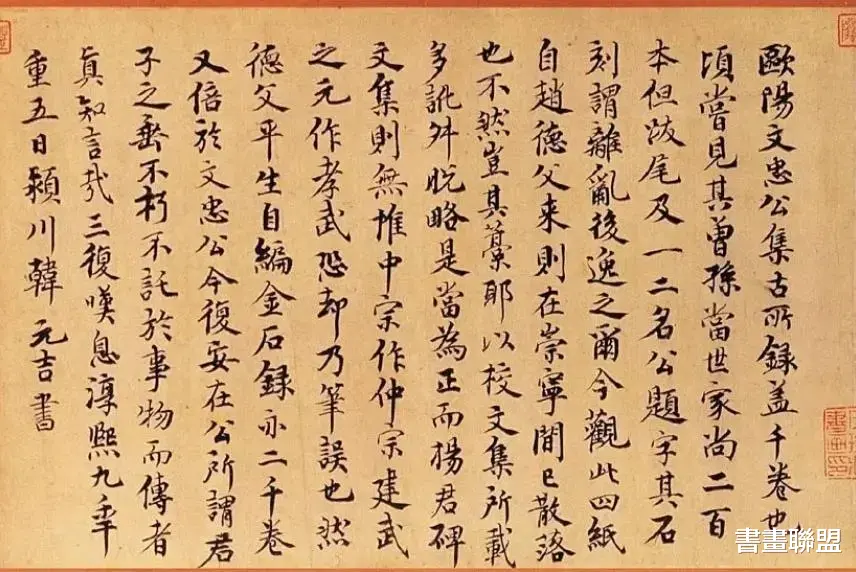 歐陽文忠公集古所録盖千卷也
頃嘗見其曾孫當世家尚二百
本但跋尾及一二名公題字其石
刻謂離亂後逸之爾今觀此四紙
自趙德父来則在崇寧間已散落
也不然豈其藁耶以校文集所載
多訛舛脱略是當為正而楊君碑
文集則無惟中宗作仲宗建武
之元作孝武恐却乃筆誤也然
德父平生自編金石録亦二千卷
又倍於文忠公今復安在公所謂君
子之垂不朽不託於事物而傳者
真知言哉三復嘆息淳熙九年
重五日潁川韓元吉書
書畫聯盟